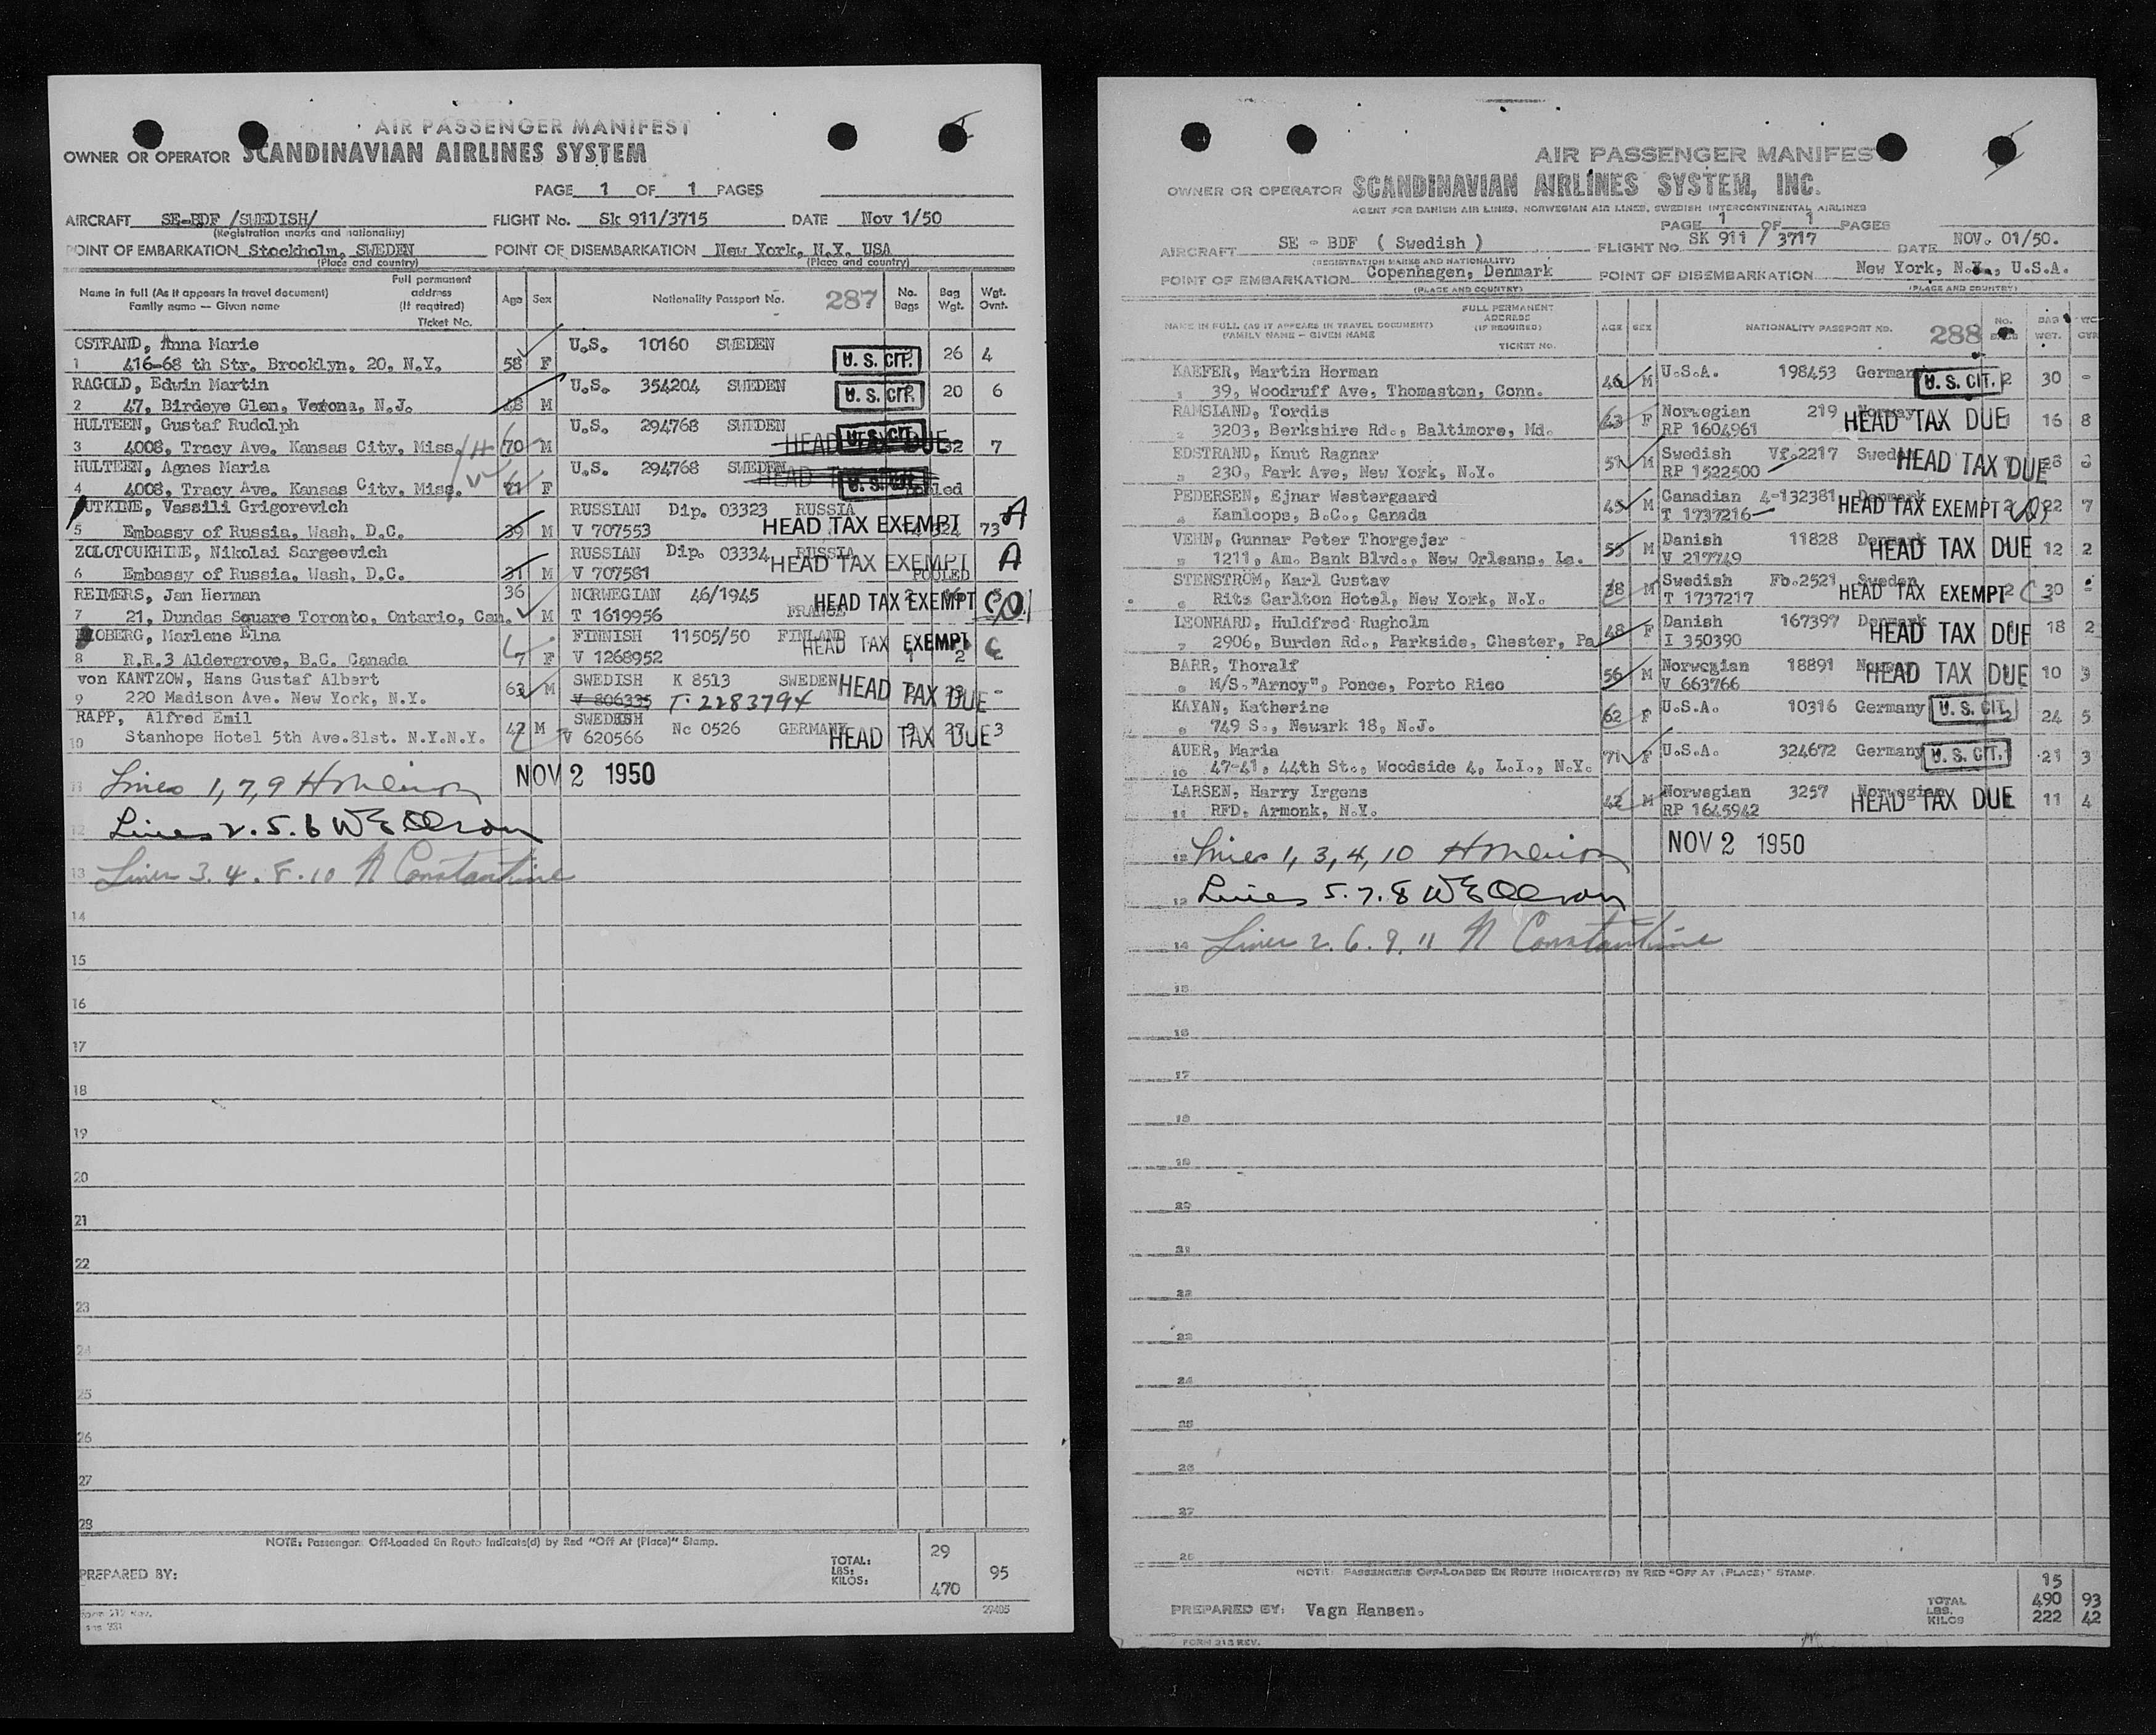 AIR PASSENGER MANIFEST
OWNER OR OPERATOR SCANDINAVIAN AIRLINES SYSTEM
PAGE 1 OF 1 PAGES
AIRCRAFT SE-BDF /SWEDISH/ FLIGHT No. Sk 911/3715 DATE Nov 1/50
(Registration marks and nationality)
POINT OF EMBARKATION Stockholm, SWEDEN POINT OF DISEMBARKATION New York, N.Y. USA
(Place and country) (Place and country)
Name in full (As it appears in travel document) Family name — Given name Full permanent address (If required) Ticket No. Age Sex Nationality Passport No. 287 No. Bags Bag Wgt. Wgt. Ovnt.
OSTRAND, Anna Marie U.S. 10160 SWEDEN
1 416-68 th Str. Brooklyn, 20, N.Y. 58 F U. S. CIT. 26 4
RAGOLD, Edwin Martin U.S. 354204 SWEDEN
2 47, Birdeye Glen, Verona, N.J. 48 M U. S. CIT. 20 6
HULTEEN, Gustaf Rudolph U.S. 294768 SWEDEN
3 4008, Tracy Ave. Kansas City, Miss. 70 M HEAD TAX DUE U. S. CIT. 32 7
HULTEEN, Agnes Maria U.S. 294768 SWEDEN
4 4008, Tracy Ave. Kansas City, Miss. 71 F U. S. CIT. Pooled
UTKINE, Vassili Grigorevich RUSSIAN Dip. 03323 RUSSIA
5 Embassy of Russia, Wash. D.C. 39 M V 707553 HEAD TAX EXEMPT 14 324 73 A
ZOLOTOUKHINE, Nikolai Sargeevich RUSSIAN Dip. 03334 RUSSIA
6 Embassy of Russia, Wash. D.C. 31 M V 707581 HEAD TAX EXEMPT POOLED A
REIMERS, Jan Herman 36 NORWEGIAN 46/1945
7 21, Dundas Square Toronto, Ontario, Can. M T 1619956 FRANCE HEAD TAX EXEMPT
OBERG, Marlene Elna FINNISH 11505/50 FINLAND
8 R.R.3 Aldergrove, B.C. Canada 7 F V 1268952 HEAD TAX EXEMPT 1 2 C
von KANTZOW, Hans Gustaf Albert SWEDISH K 8513 SWEDEN
9 220 Madison Ave. New York, N.Y. 63 M V 806335 T-2283794 HEAD TAX DUE -
RAPP, Alfred Emil SWEDISH Nc 0526 GERMANY
10 Stanhope Hotel 5th Ave.81st. N.Y.N.Y. 42 M V 620566 HEAD TAX DUE 27 3
11 Lines 1,7,9 NOV 2 1950
12 Lines 2.5.6
13 Lines 3.4.8.10 N Constantine
14
15
16
17
18
19
20
21
22
23
24
25
26
27
28
NOTE: Passengers Off-Loaded En Route Indicate(d) by Red "Off At (Place)" Stamp.
PREPARED BY: TOTAL: LBS: KILOS: 29 470 95
Form 212 Rev. 27405
AIR PASSENGER MANIFEST
OWNER OR OPERATOR SCANDINAVIAN AIRLINES SYSTEM, INC.
AGENT FOR DANISH AIR LINES, NORWEGIAN AIR LINES, SWEDISH INTERCONTINENTAL AIRLINES
PAGE 1 OF 1 PAGES
AIRCRAFT SE - BDF ( Swedish ) FLIGHT No. SK 911 / 3717 DATE NOV. 01/50.
(REGISTRATION MARKS AND NATIONALITY)
POINT OF EMBARKATION Copenhagen, Denmark POINT OF DISEMBARKATION New York, N.Y., U.S.A.
(PLACE AND COUNTRY) (PLACE AND COUNTRY)
NAME IN FULL (AS IT APPEARS IN TRAVEL DOCUMENT) FAMILY NAME – GIVEN NAME FULL PERMANENT ADDRESS (IF REQUIRED) TICKET NO. AGE SEX NATIONALITY PASSPORT NO. 288 No. BAGS BAG WGT.
KAEFER, Martin Herman U.S.A. 198453 Germany
1 39, Woodruff Ave, Thomaston, Conn. 46 M U. S. CIT. 2 30 -
RAMSLAND, Tordis Norwegian 219 Norway
2 3203, Berkshire Rd., Baltimore, Md. 43 F RP 1604961 HEAD TAX DUE 1 16 8
EDSTRAND, Knut Ragnar Swedish Vf.2217 Sweden
3 230, Park Ave, New York, N.Y. 51 M RP 1522500 HEAD TAX DUE 26 6
PEDERSEN, Ejnar Westergaard Canadian 4-132381 Denmark
4 Kamloops, B.C., Canada 45 M T 1737216 HEAD TAX EXEMPT 2 22 7
VEHN, Gunnar Peter Thorgejer Danish 11828 Denmark
5 1211, Am. Bank Blvd., New Orleans, La. 55 M V 217749 HEAD TAX DUE 12 2
STENSTROM, Karl Gustav Swedish Fb.2521 Sweden
6 Ritz Carlton Hotel, New York, N.Y. 38 M T 1737217 HEAD TAX EXEMPT 2 C 30
LEONHARD, Huldfred Rugholm Danish 167397 Denmark
7 2906, Burden Rd., Parkside, Chester, Pa 48 F I 350390 HEAD TAX DUE 18 2
BARR, Thoralf Norwegian 18891 Norway
8 M/S."Arnoy", Ponce, Porto Rico 56 M V 663766 HEAD TAX DUE 10 3
KAYAN, Katherine U.S.A. 10316 Germany
9 749 S., Newark 18, N.J. 62 F U. S. CIT. 2 24 5
AUER, Maria U.S.A. 324672 Germany
10 47-41, 44th St., Woodside 4, L.I., N.Y. 71 F U. S. CIT. 21 3
LARSEN, Harry Irgens Norwegian 3257 Norwegian
11 RFD. Armonk, N.Y. 42 M RP 1645942 HEAD TAX DUE 11 4
12 Lines 1, 3, 4, 10 NOV 2 1950
13 Lines 5.7.8
14 Lines 2.6.9.11 N Constantine
15
16
17
18
19
20
21
22
23
24
25
26
27
28
NOTE: PASSENGERS OFF-LOADED EN ROUTE INDICATE(D) BY RED "OFF AT (PLACE)" STAMP.
PREPARED BY: Vagn Hansen. TOTAL LBS. KILOS 15 490 93 222 42
FORM 212 REV.